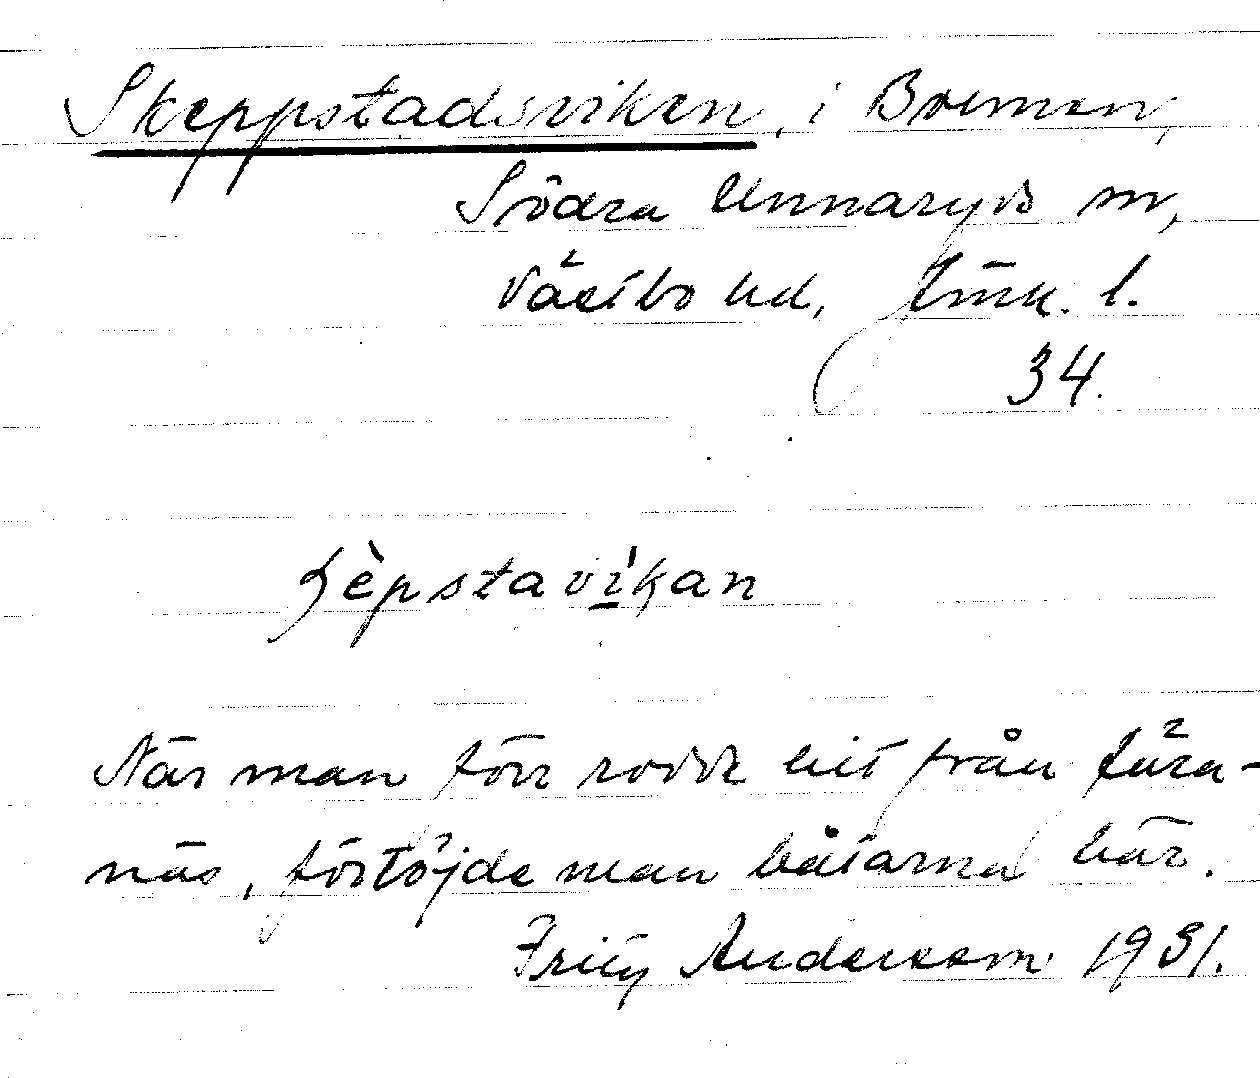 Skeppstadsviken, i Bremen,
Södra Unnaryds sn,
Västbo hd, Jönk. l.
34.
ʃèpstavìkan
När man förr rodde hit från Fåra-
näs, förtöjde man båtarna här.
Fritz Andersson 1931.